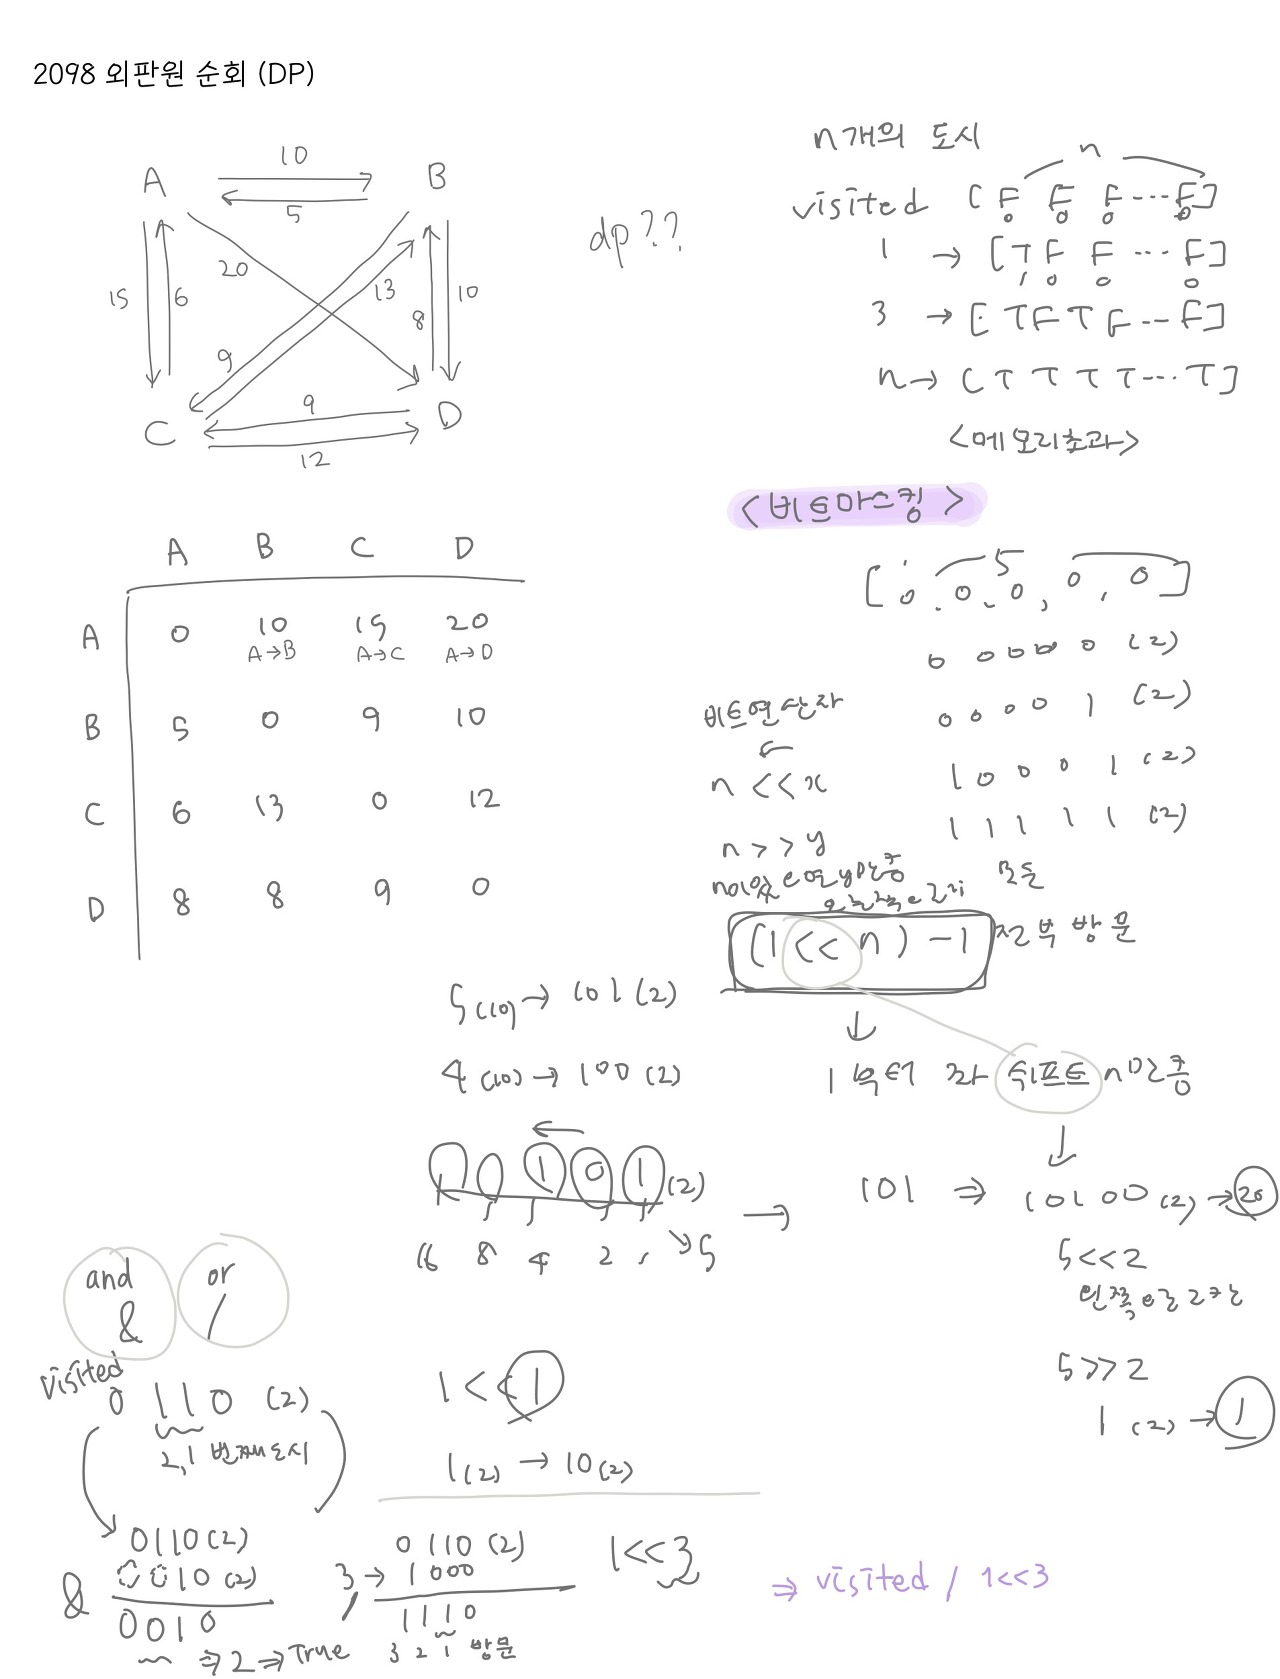 2098 외판원 순회 (DP)
A 10 B
5
20
15 6 13 8 10
9
C 9 D
12
dp??
n개의 도시
n
visited [F F F ... F]
0 0 0 0
1 → [T F F ... F]
1 0 0 0
3 → [T F T F -- F]
n → [T T T T --- T]
<메모리초과>
<비트마스킹>
5
[0, 0, 0, 0, 0]
0 0 0 0 0 (2)
0 0 0 0 1 (2)
1 0 0 0 1 (2)
1 1 1 1 1 (2)
모든
전부 방문
A B C D
A 0 10 15 20
A→B A→C A→D
B 5 0 9 10
C 6 13 0 12
D 8 8 9 0
비트연산자
←
n << x
n >> y
(1 << n) - 1
↓
1부터 좌 쉬프트 n만큼
↓
5(10) → 101(2)
4(10) → 100(2)
←
1 0 1 0 1 (2)
16 8 4 2 1 ↘ 5
→ 101 ⇒ 10100(2) → 20
5<<2
왼쪽으로 2칸
5>>2
1(2) → 1
and or
& /
visited
0 1 1 0 (2)
2,1 번째 도시
0110(2)
& 0010(2)
0010
⇒ 2 ⇒ True
1 << 1
1(2) → 10(2)
0 110 (2)
3 → 1000
/
1110
3 2 1 방문
1<<3
⇒ visited / 1<<3